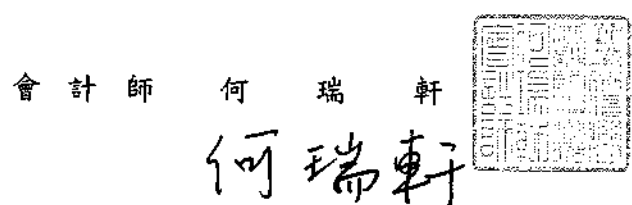 會計師 何瑞軒
何瑞軒